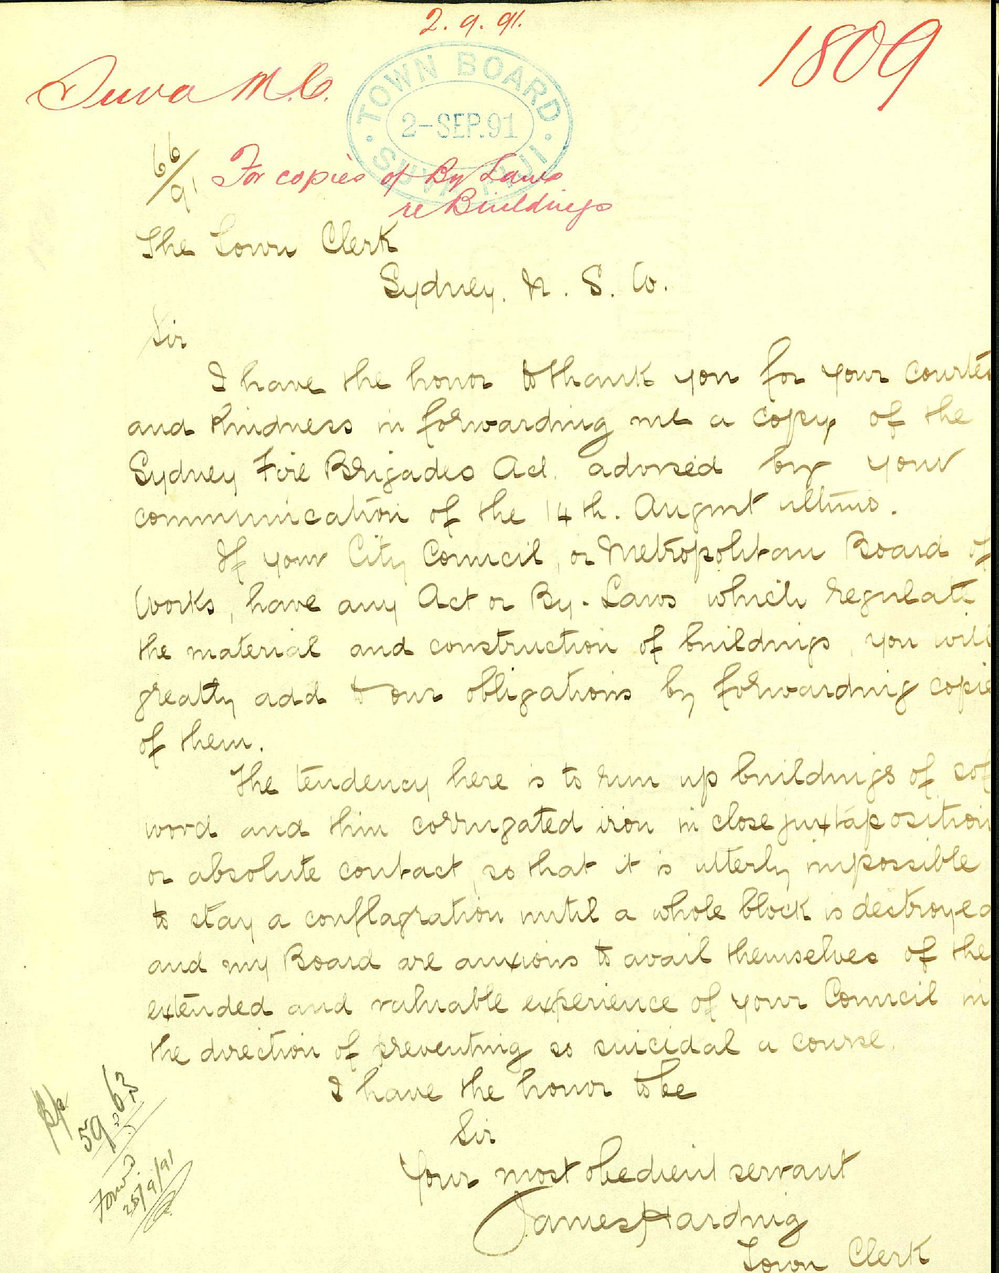 2.9.91.
1809
Suva M.C.
TOWN BOARD
2-SEP.91
SUVA FIJI
66/91
For copies of By Laws
re Buildings
The Town Clerk
Sydney. N. S. W.
Sir
I have the honor to thank you for your courtes
and kindness in forwarding me a copy, of the
Sydney Fire Brigades Act. advised by your
communication of the 14th. August ultimo.
If your City Council, or Metropolitan Board of
Works, have any Act or By-Laws which regulate
the material and construction of buildings, you will
greatly add to our obligations by forwarding copie
of them.
The tendency here is to run up buildings of sof
wood and thin corrugated iron in close juxtaposition
or absolute contact, so that it is utterly impossible
to stay a conflagration until a whole block is destroyed
and my Board are anxious to avail themselves of the
extended and valuable experience of your Council in
the direction of preventing so suicidal a course.
I have the honor to be
Sir
Your most obedient servant
James Harding
Town Clerk
59
63
Forwd.
25/9/91